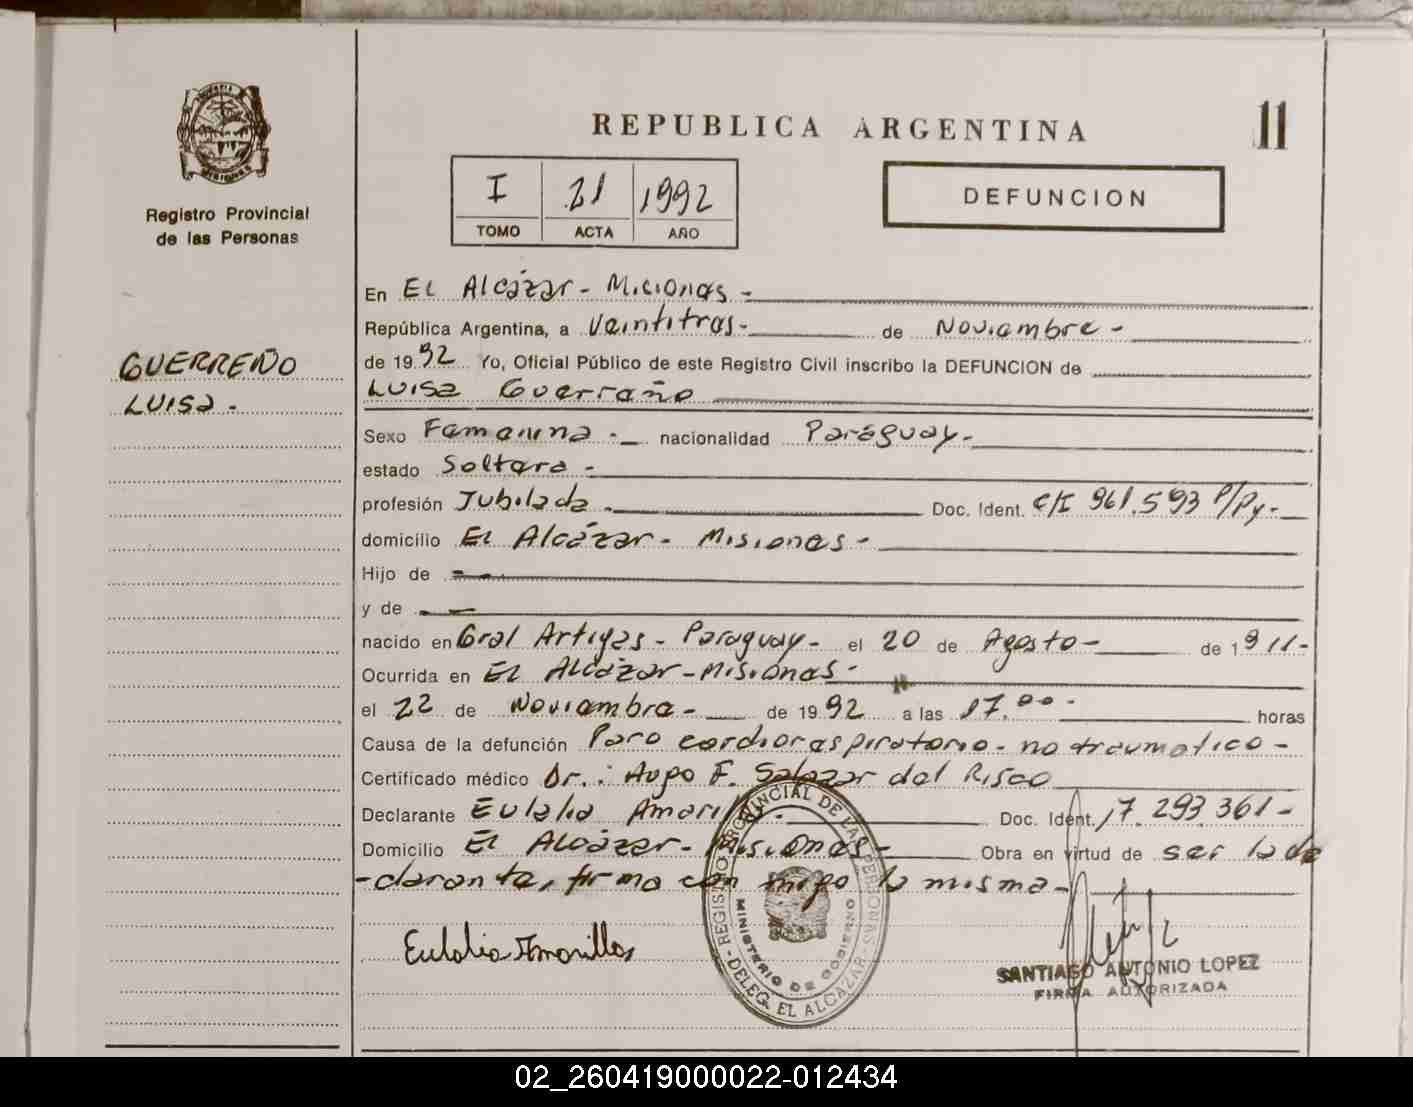 REPUBLICA ARGENTINA
11
I 21 1992
TOMO ACTA AÑO
DEFUNCION
Registro Provincial
de las Personas
GUERREÑO
LUISA.
En El Alcázar - Misiones -
República Argentina, a Veintitres- de Noviembre -
de 1992 Yo, Oficial Público de este Registro Civil inscribo la DEFUNCION de
LUISA Guerreño
Sexo Femenina.- nacionalidad Paraguay-
estado Soltera -
profesión Jubilada.- Doc. Ident. C/I 961.593 P/Py-
domicilio El Alcázar - Misiones -
Hijo de
y de
nacido en Gral Artigas - Paraguay - el 20 de Agosto - de 1911-
Ocurrida en El Alcázar - Misiones -
el 22 de Noviembre - de 1992 a las 17.00- horas
Causa de la defunción Paro cardiorespiratorio - no traumatico -
Certificado médico Dr.: Hugo F. Salazar del Risco
Declarante Eulalia Amarilla.- Doc. Ident. 17.293.361-
Domicilio El Alcázar - Misiones - Obra en virtud de ser la de
-clarante, firma con migo la misma -
Eulalia Amarilla
REGISTRO PROVINCIAL DE LAS PERSONAS
MINISTERIO DE GOBIERNO
- DELEG. EL ALCAZAR -
SANTIAGO ANTONIO LOPEZ
FIRMA AUTORIZADA
02_260419000022-012434